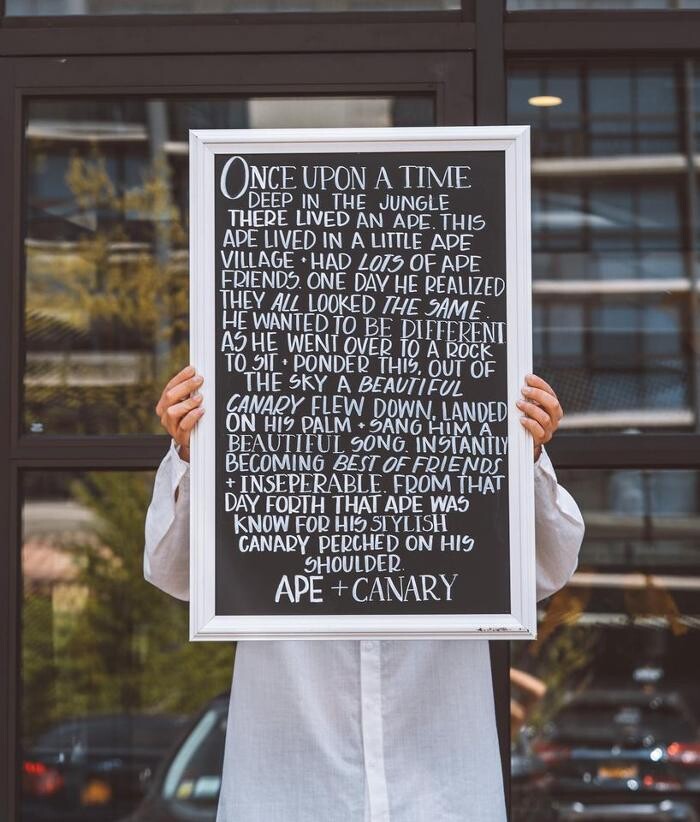 ONCE UPON A TIME
DEEP IN THE JUNGLE
THERE LIVED AN APE. THIS
APE LIVED IN A LITTLE APE
VILLAGE + HAD LOTS OF APE
FRIENDS. ONE DAY HE REALIZED
THEY ALL LOOKED THE SAME.
HE WANTED TO BE DIFFERENT.
AS HE WENT OVER TO A ROCK
TO SIT + PONDER THIS, OUT OF
THE SKY A BEAUTIFUL
CANARY FLEW DOWN, LANDED
ON HIS PALM + SANG HIM A
BEAUTIFUL SONG. INSTANTLY
BECOMING BEST OF FRIENDS
+ INSEPERABLE. FROM THAT
DAY FORTH THAT APE WAS
KNOW FOR HIS STYLISH
CANARY PERCHED ON HIS
SHOULDER.
APE + CANARY